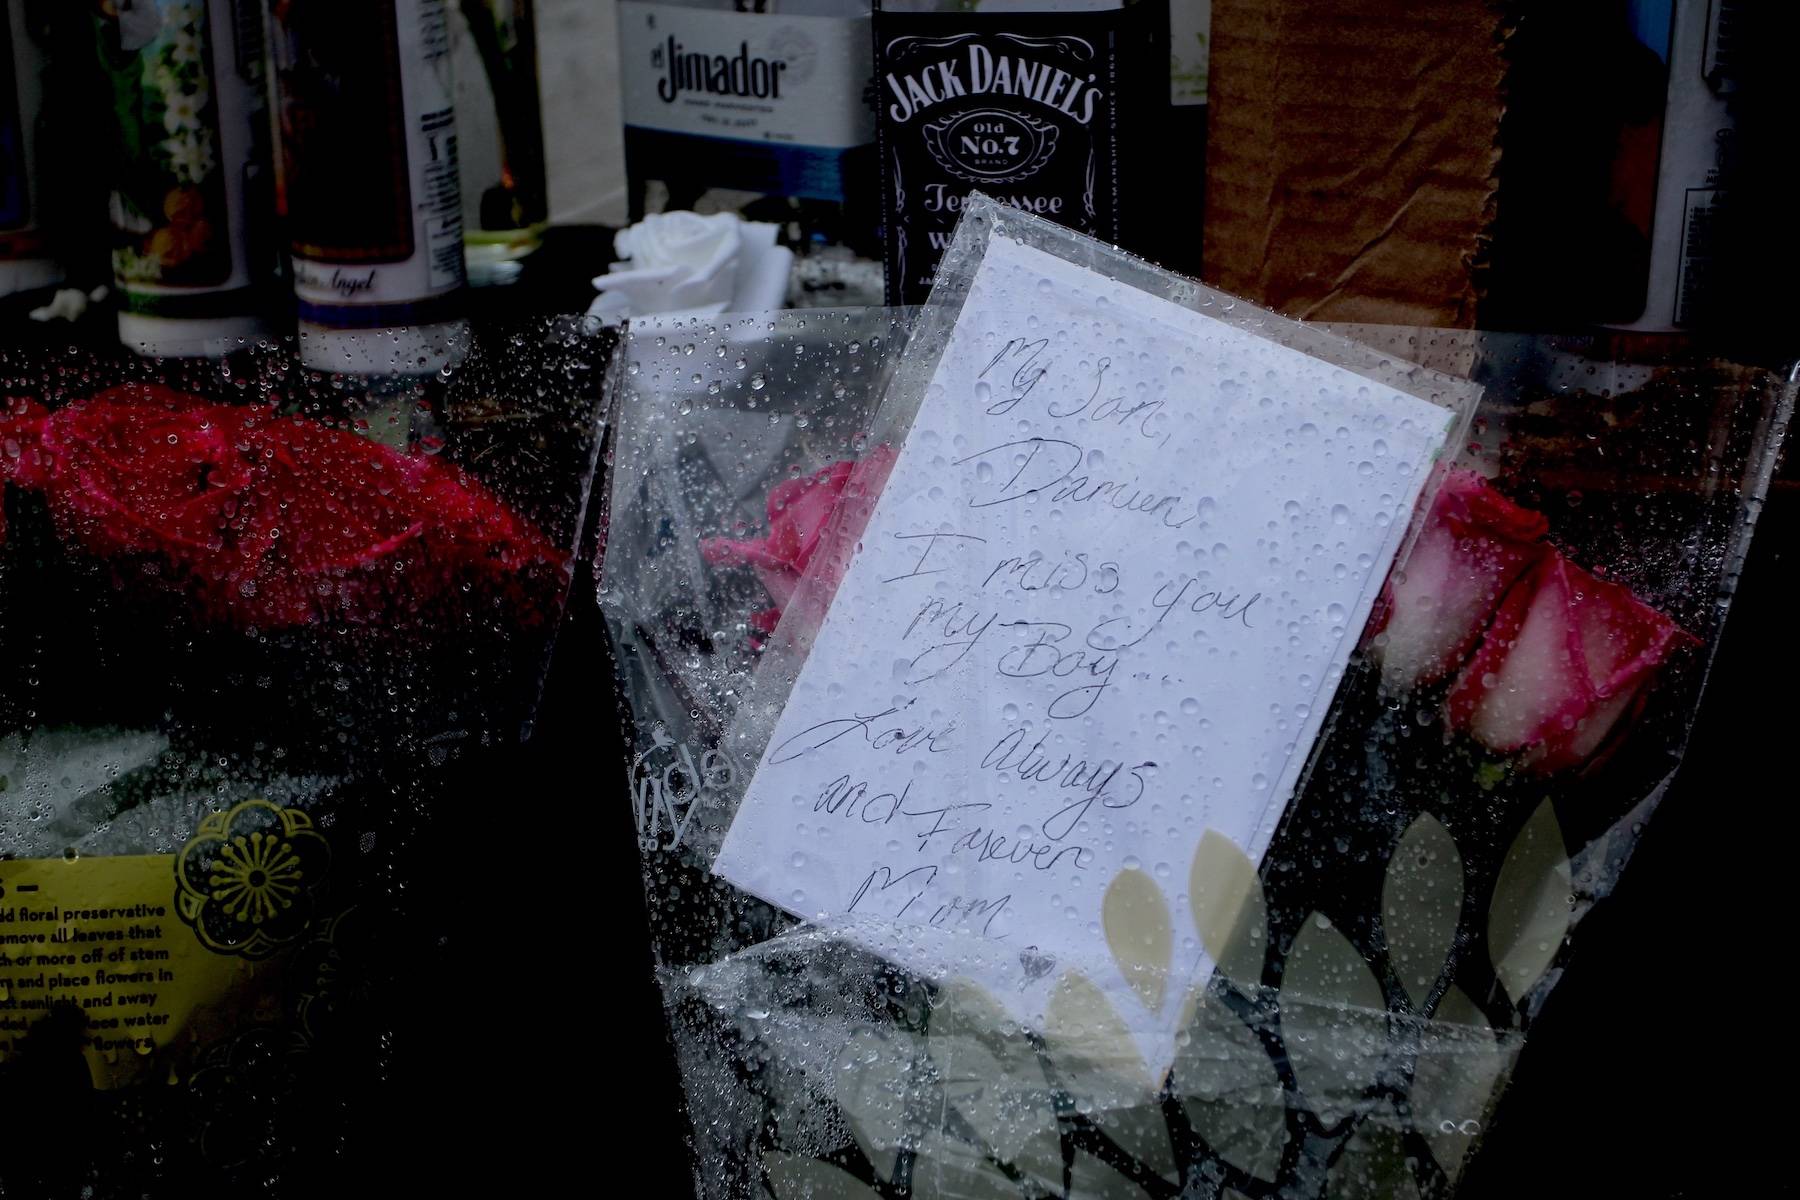 el
Jimador
JACK DANIEL'S
Old
No.7
BRAND
Tennessee
Angel
My Son,
Damien
I miss you
my Boy....
Love Always
and Forever
Mom
dd floral preservative
emove all leaves that
h or more off of stem
rs and place flowers in
ct sunlight and away
water
flowers